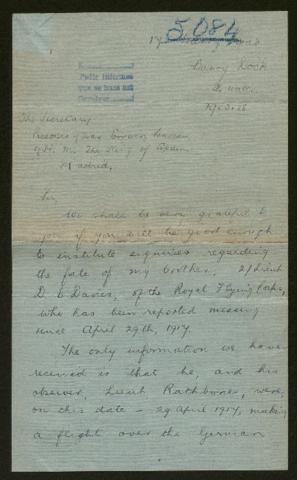 5.084
Barry Dock
The Secretary
Madrid.
Sir,
We shall be very grateful to
you if you will be good enough
to institute enquiries regarding
the fate of my brother, 2/Lieut
D. E Davies, of the Royal Flying Corps,
who has been reported missing
since April 29th, 1917.
The only information we have
received is that he, and his
observer, Lieut Rathbone, were,
on this date - 29 April 1917, making
a flight over the German